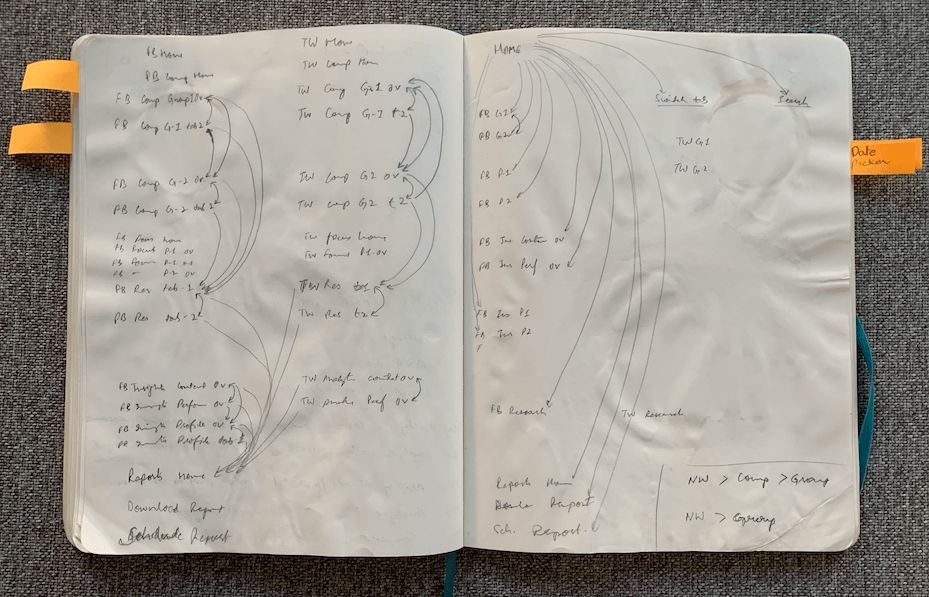 FB Home
FB Comp Home
FB Comp Group 1 Ov
FB Comp G-1 tab 2
FB Comp G-2 ov
FB Comp G-2 tab 2
FB Focus home
FB Focus P.1 ov
FB Focus P.1
FB P.2 ov
FB Res tab-1
FB Res tab-2
FB Insights Content Ov
FB Insights Perform Ov
FB Insights Profile Ov
FB Insights Profile tab 2
Reports Home
Download Report
Schedule Report
TW Home
TW Comp Hom
TW Comp Gr 1 ov
TW Comp G-1 t2
TW Comp G2 ov
TW Comp G2 t2
TW focus home
TW Focus P1-ov
TW Res tab1
TW Res t2
TW Analytics Content ov
TW Perf ov
HOME
FB G1
FB G2
FB P.1
FB P.2
FB Ins. Content ov
FB Ins Perf. ov
FB Ins P1
FB Ins P2
F
FB Research
Reports Home
Report
Sch. Report.
Switch to B
Search
TW G1
TW G.2
TW Research
NW > Comp > Group
NW > Group
Date
Picker